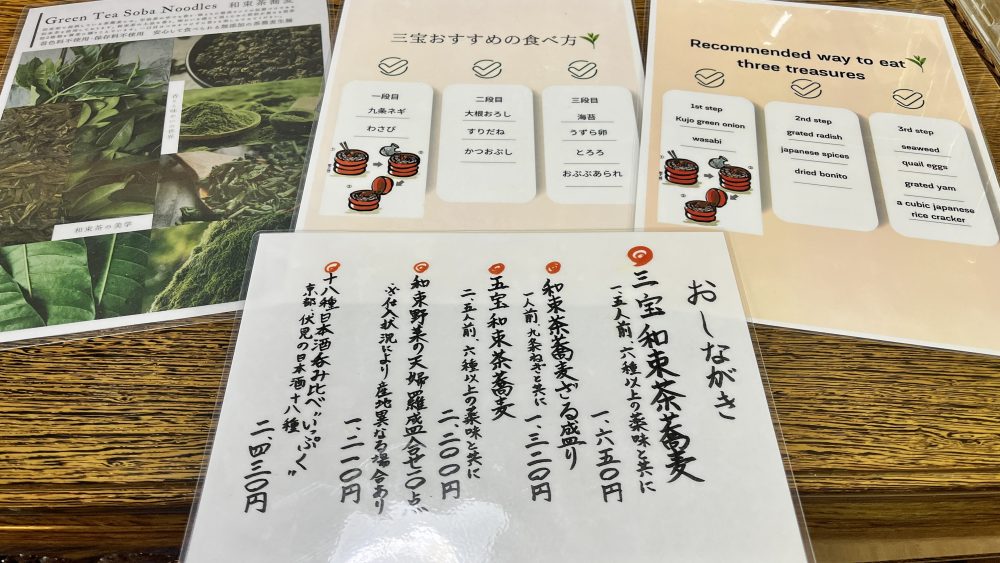 Green Tea Soba Noodles 和束茶蕎麦
着色料不使用・保存料不使用 安心して食べられる無添加の茶蕎麦生麺
香りと味わいの世界
和束茶の美学
三宝おすすめの食べ方
一段目
九条ネギ
わさび
二段目
大根おろし
すりだね
かつおぶし
三段目
海苔
うずら卵
とろろ
おぶぶあられ
Recommended way to eat
three treasures
1st step
Kujo green onion
wasabi
2nd step
grated radish
japanese spices
dried bonito
3rd step
seaweed
quail eggs
grated yam
a cubic japanese
rice cracker
おしながき
三宝 和束茶蕎麦
一、五人前、六種以上の薬味と共に
一、六五〇円
和束茶蕎麦ざる盛り
一人前、九条ねぎと共に
一、三二〇円
五宝 和束茶蕎麦
二、五人前、六種以上の薬味と共に
二、二〇〇円
和束野菜の天婦羅盛合せ二〇点
※仕入状況により産地異なる場合あり
一、二一〇円
十八種日本酒呑み比べ"いっぷく"
京都、伏見の日本酒十八種
二、四三〇円